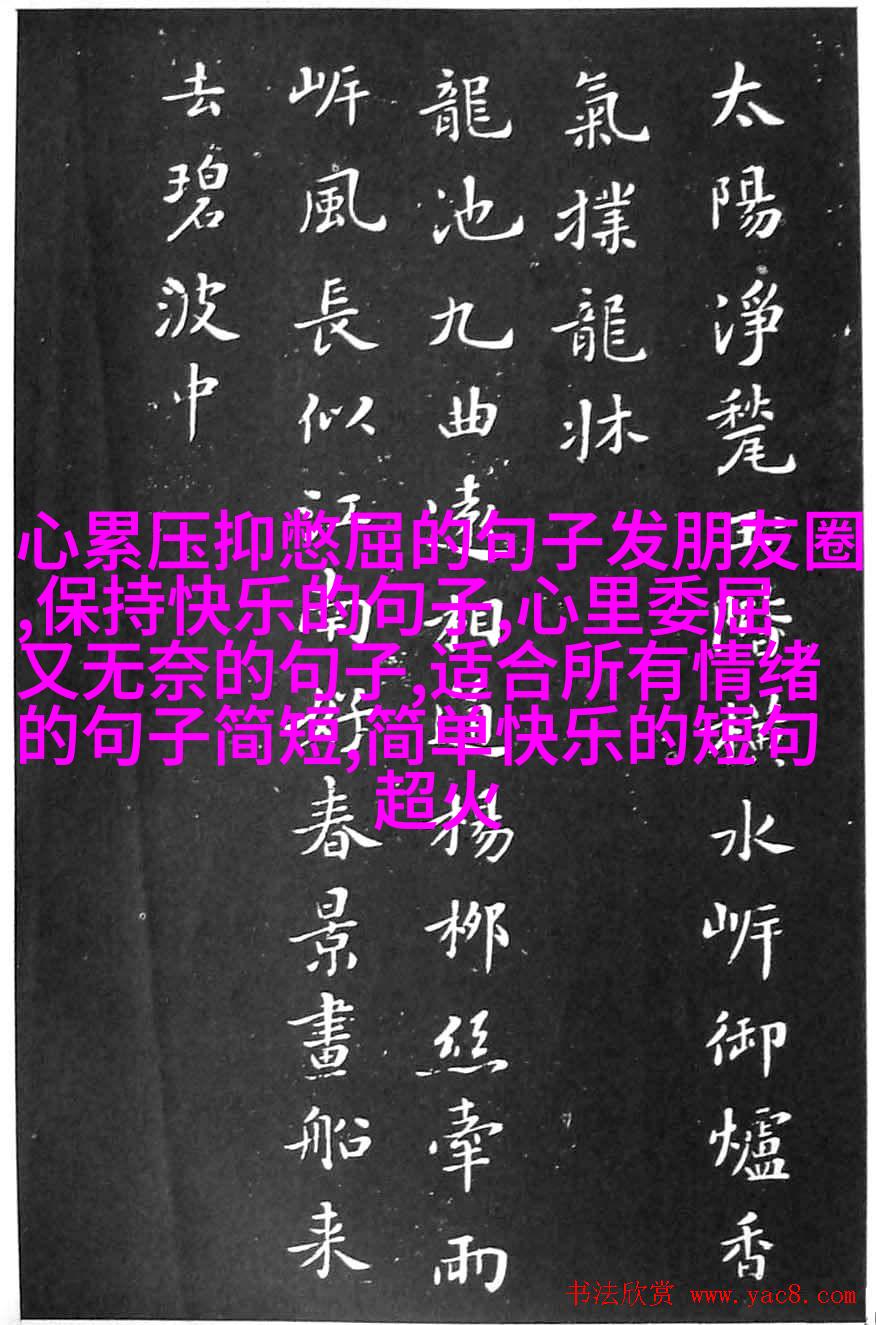 太陽淨甃水岸御爐香
氣撲龍牀
龍池九曲遠相通楊柳絲牽兩
岸風長似江南好春景畫船来
去碧波中
心累压抑憋屈的句子发朋友圈
,保持快乐的句子,心里委屈
又无奈的句子,适合所有情绪
的句子简短,简单快乐的短句
超火
书法欣赏 www.yac8.com